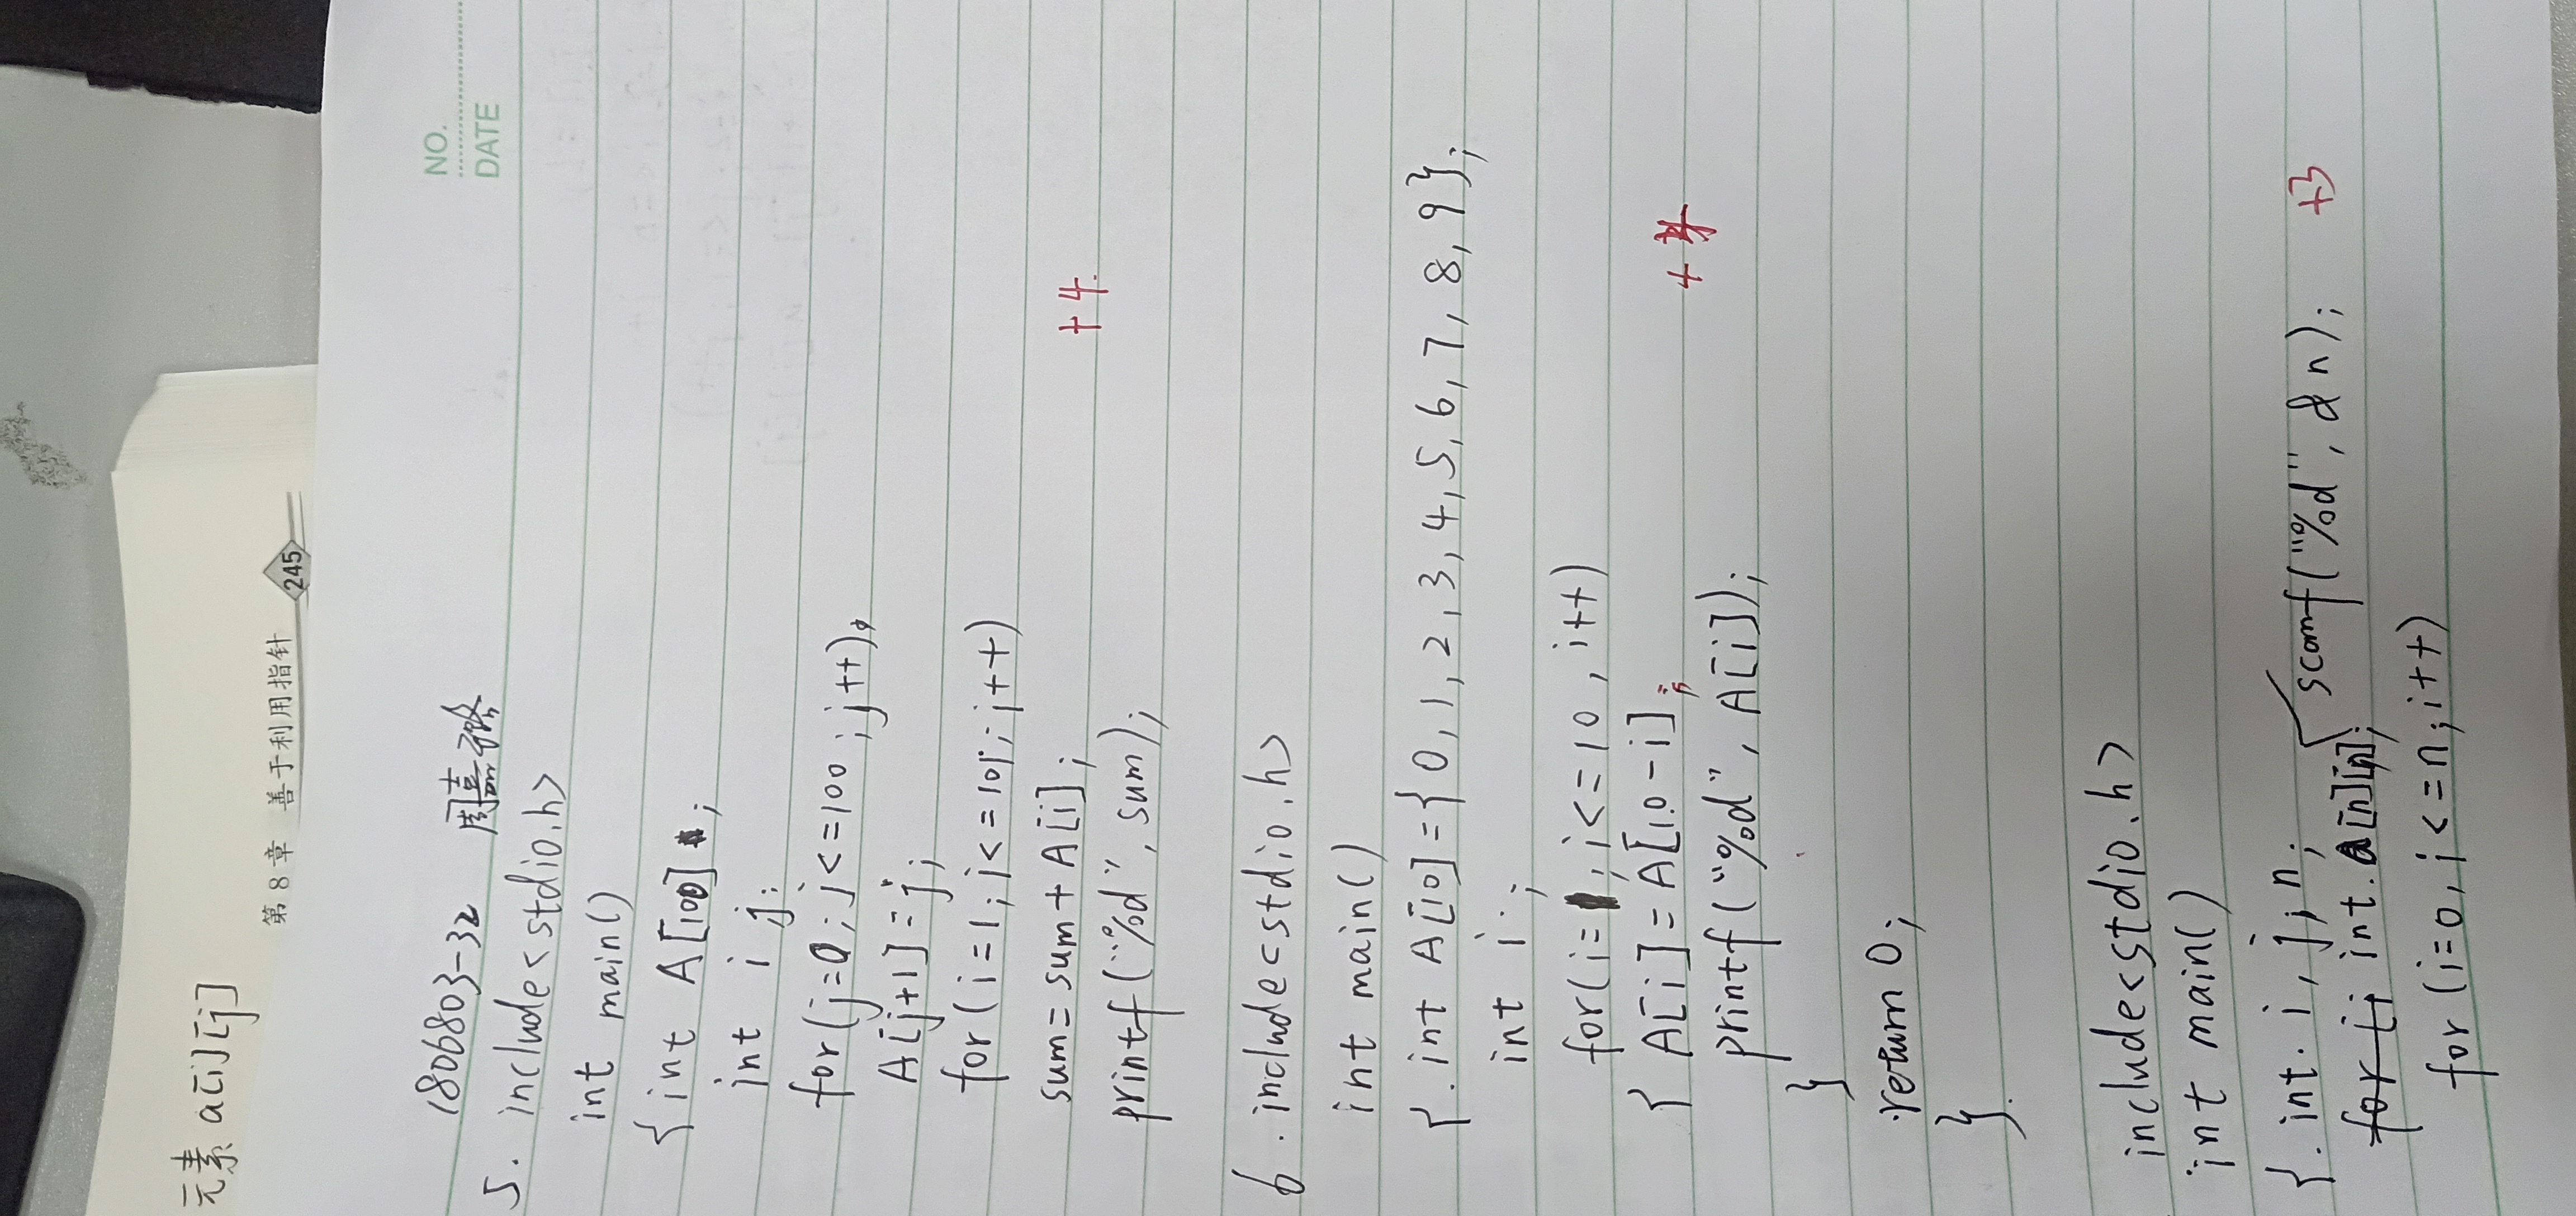 元素 a[i][j]
第8章 善于利用指针 245
NO.
DATE
180803-32 周嘉
5. include<stdio.h>
int main()
{ int A[100] ;
int i j;
for(j=0; j<=100; j++),
A[j+1]=j;
for(i=1; i<=101; i++)
sum=sum+A[i]; +4
printf("%d", sum);
6. include<stdio.h>
int main()
{ . int A[10]={0,1,2,3,4,5,6,7,8,9};
int i ;
for(i= ; i<=10, i++)
{ A[i]=A[10-i]; +
printf("%d", A[i]);
}
return 0;
}
include<stdio.h>
int main()
{ . int. i, j, n; scanf("%d", &n); +3
for (j int. a[n][n];
for (i=0, i<=n; i++)